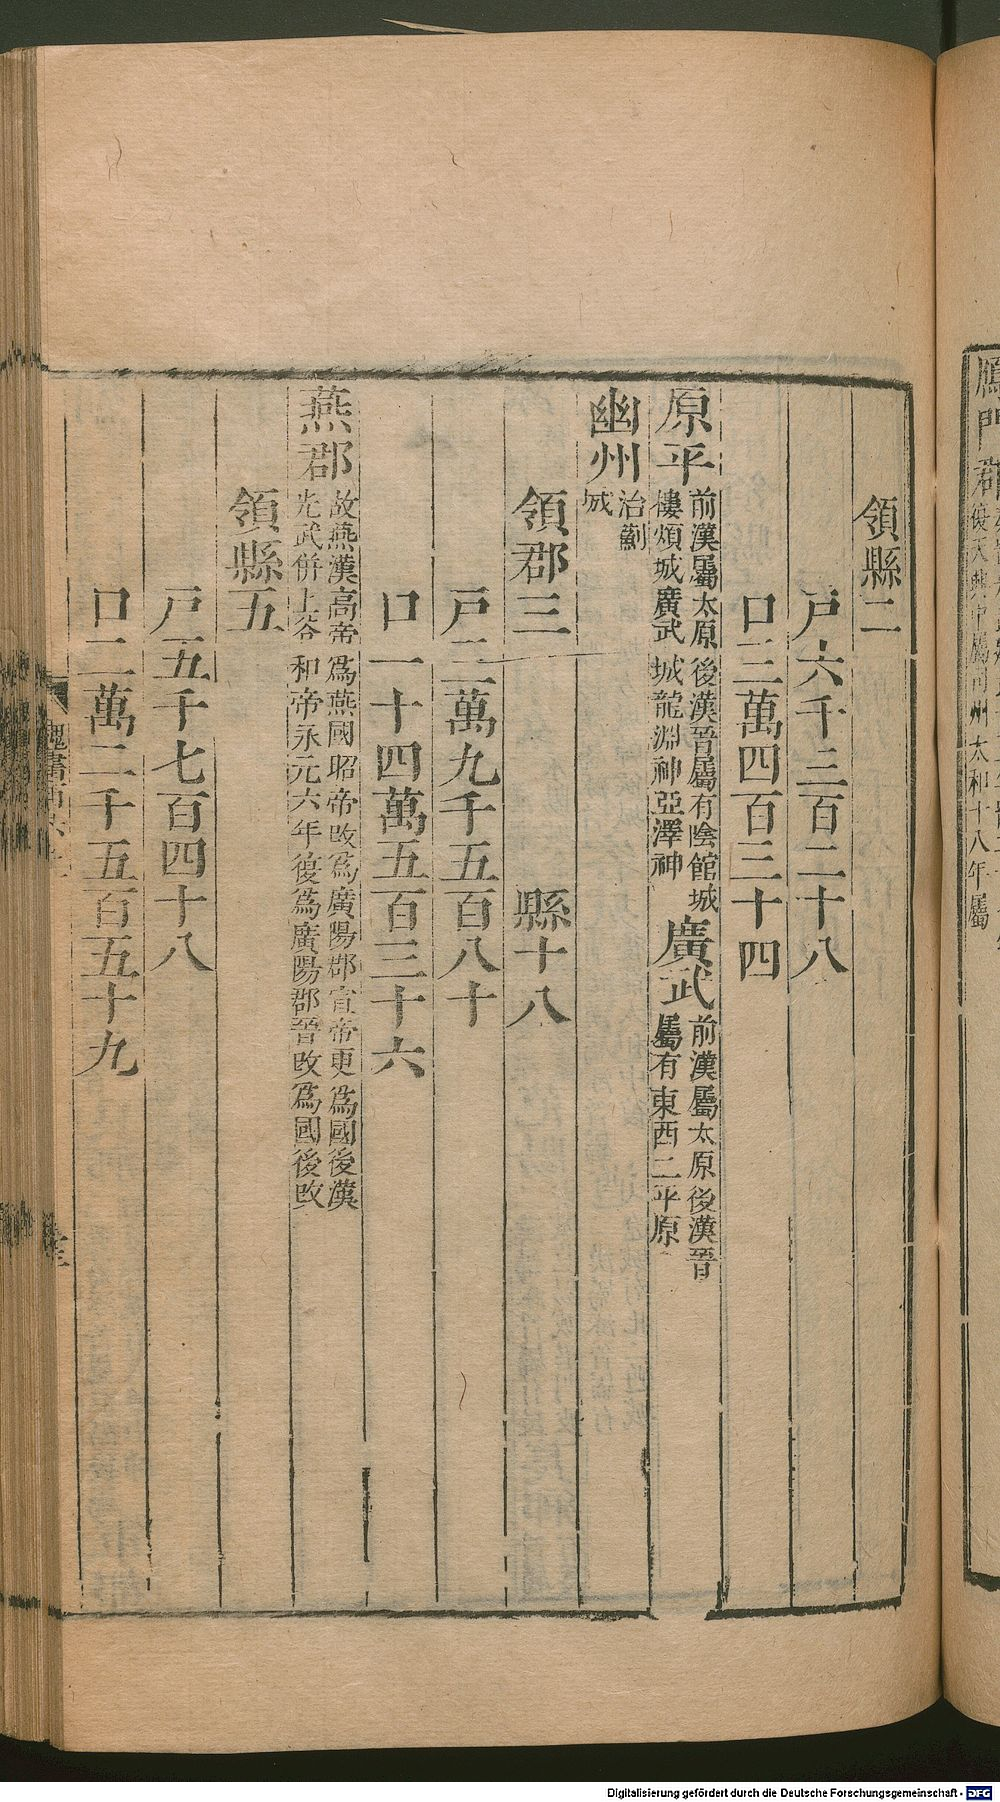 領縣二
戶六千三百二十八
口三萬四百三十四
原平前漢屬太原後漢晉屬有陰館城樓煩城廣武城龍淵神亞澤神廣武前漢屬太原後漢晉屬有東西二平原
幽州治薊城
領郡三 縣十八
戶三萬九千五百八十
口一十四萬五百三十六
燕郡故燕漢高帝爲燕國昭帝改爲廣陽郡宣帝更爲國後漢光武併上谷和帝永元六年復爲廣陽郡晉改爲國後改
領縣五
戶五千七百四十八
口二萬二千五百五十九
魏書
Digitalisierung gefördert durch die Deutsche Forschungsgemeinschaft - DFG